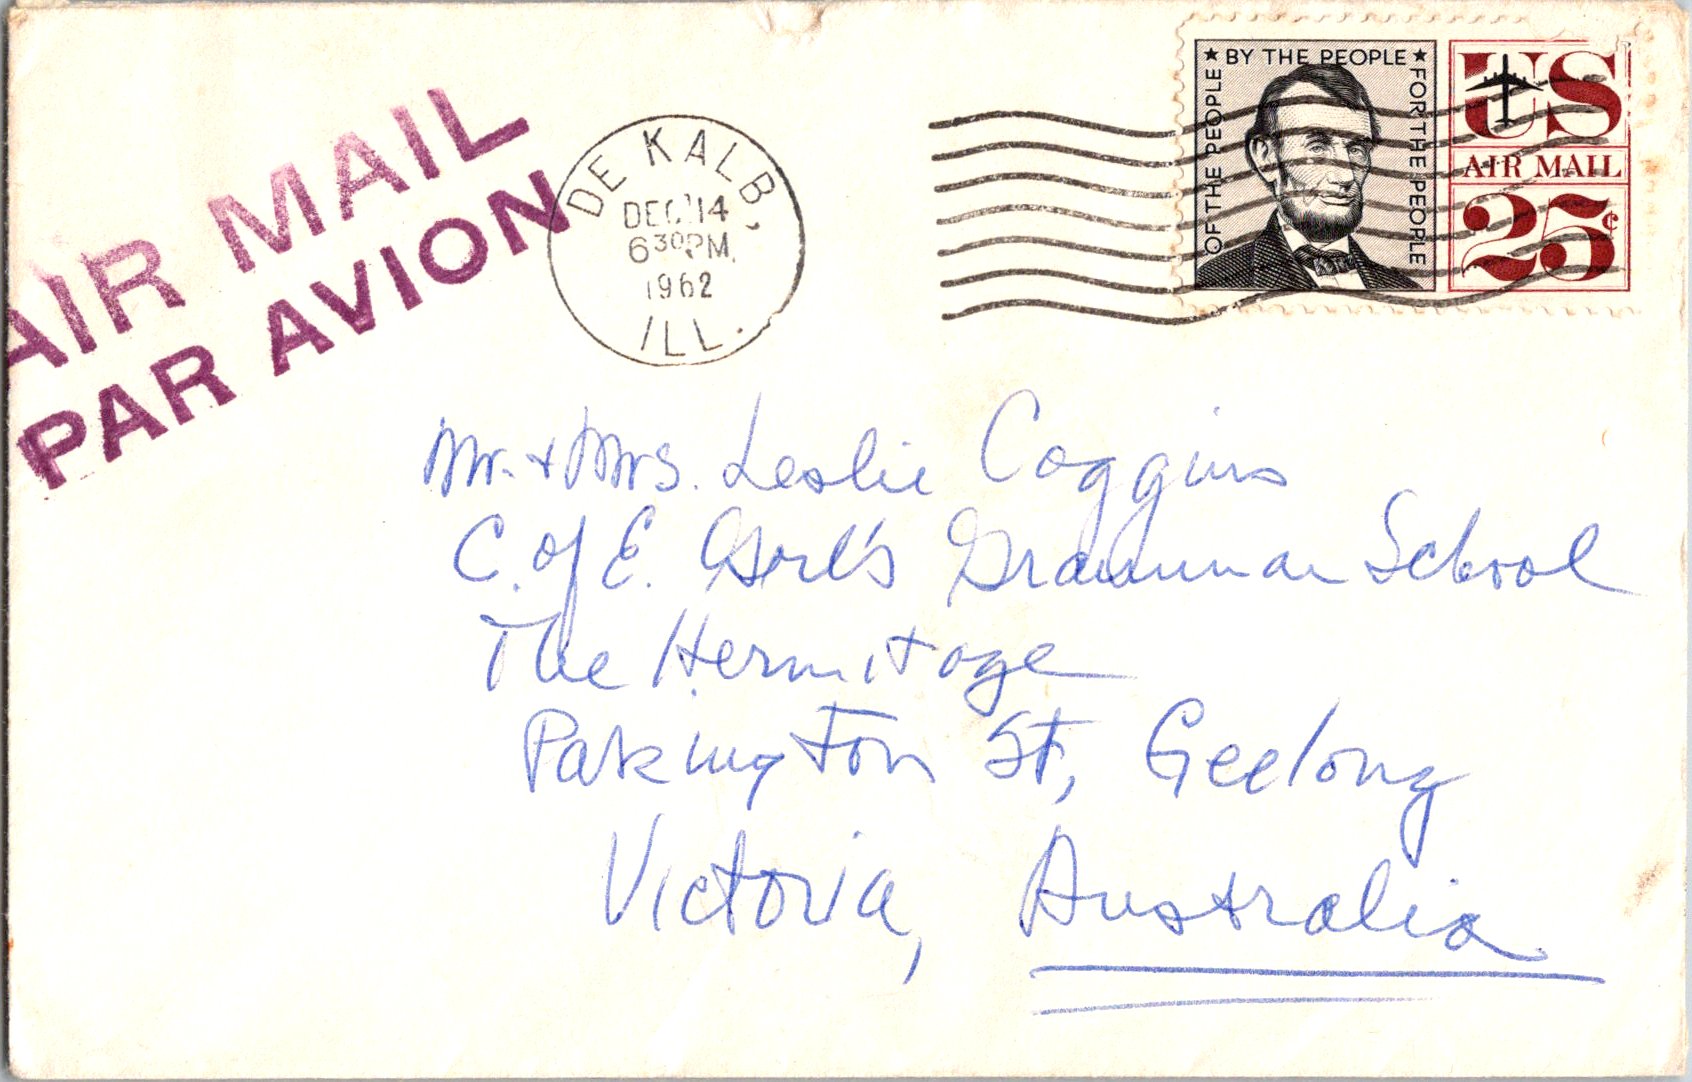 AIR MAIL
PAR AVION
DE KALB,
DEC 14
6 30 PM.
1962
ILL.
OF THE PEOPLE ★ BY THE PEOPLE ★ FOR THE PEOPLE
US
AIR MAIL
25¢
Mr. + Mrs. Leslie Coggins
C. of E. Girl's Grammar School
The Hermitage
Pakington St, Geelong
Victoria, Australia